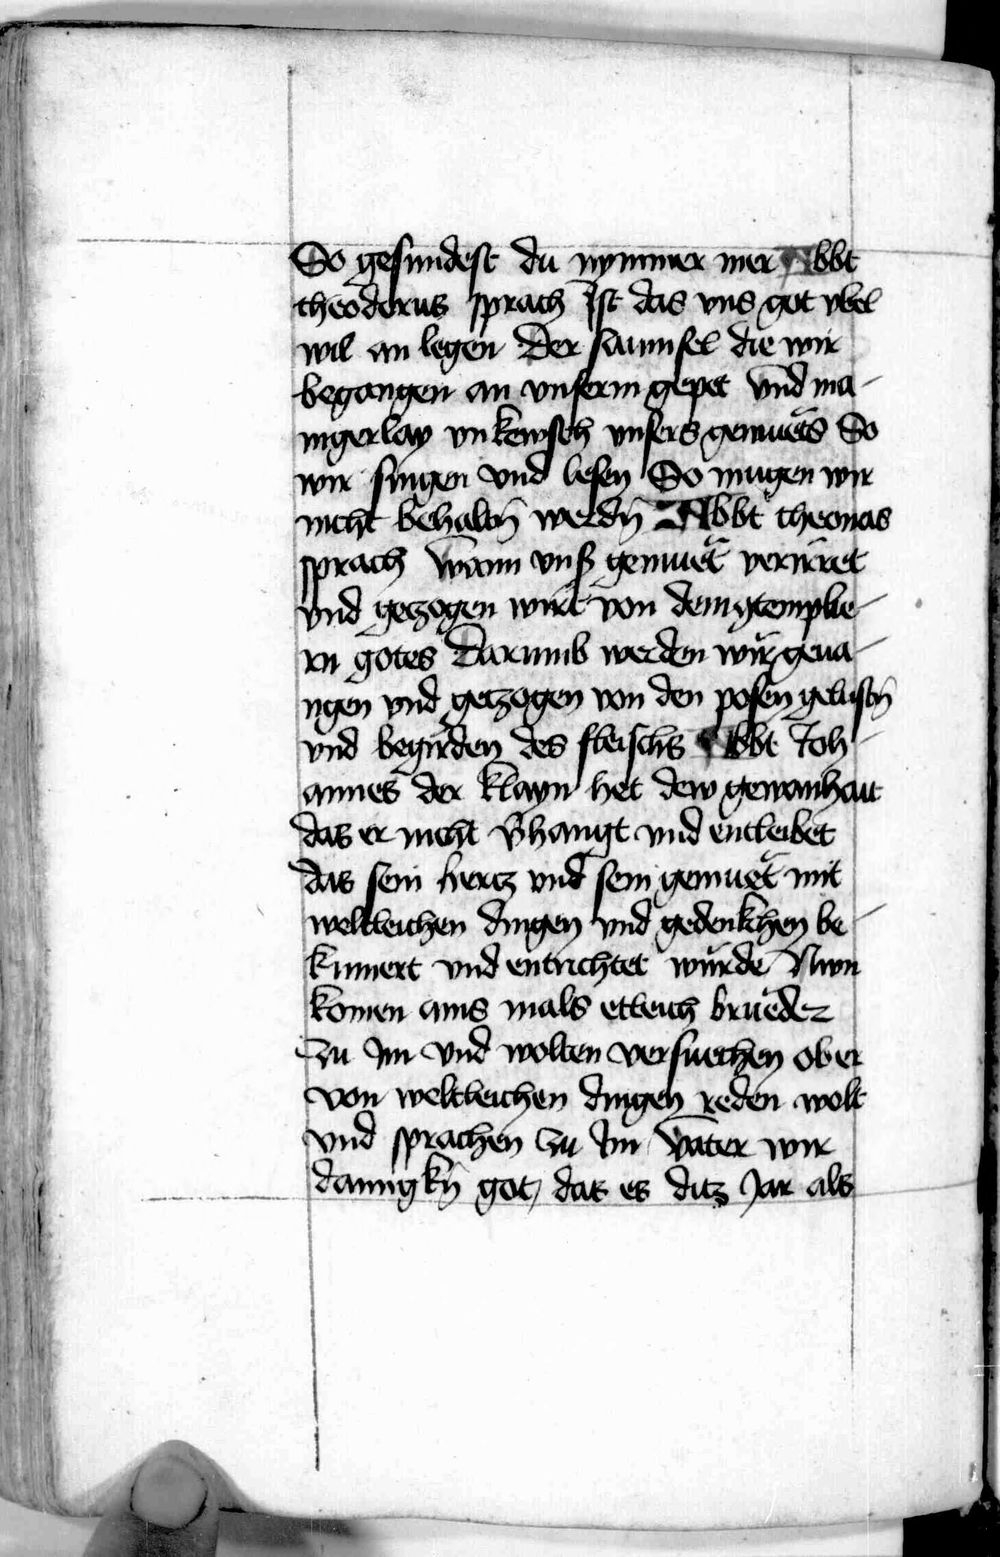 So gesundest du nymmer mer Abbt
theoderus sprach Ist das vns got vbel
wil an legen Der saumsel die wir
begangen an vnserm gepet vnd ma-
nigerlay vnkewsch vnsers gemuets So
wir singen vnd lesen So mugen wir
nicht behaltn̄ werdn̄ Abbt theonas
sprach Wann vnß gemuet verirret
vnd geczogen wirt von dem
rn gotes Darumb werden wir geua-
ngen vnd geczogen von den posen gelustn̄
vnd begirden des fleischs Abbt Joh-
annes der klayn het dew gewanhait
das er nicht v̄hangt vnd entleibet
das sein hertz vnd sein gemuet mit
weltleichen dingen vnd gedenkchen be-
kumert vnd entrichtet wurde Nwn
komen ains mals etleich brueder
zu Im vnd wolten versuechen ob er
von weltleichen dingen reden wolt
vnd sprachen zu Im vater wir
danngkn̄ got, das es ditz Jar als